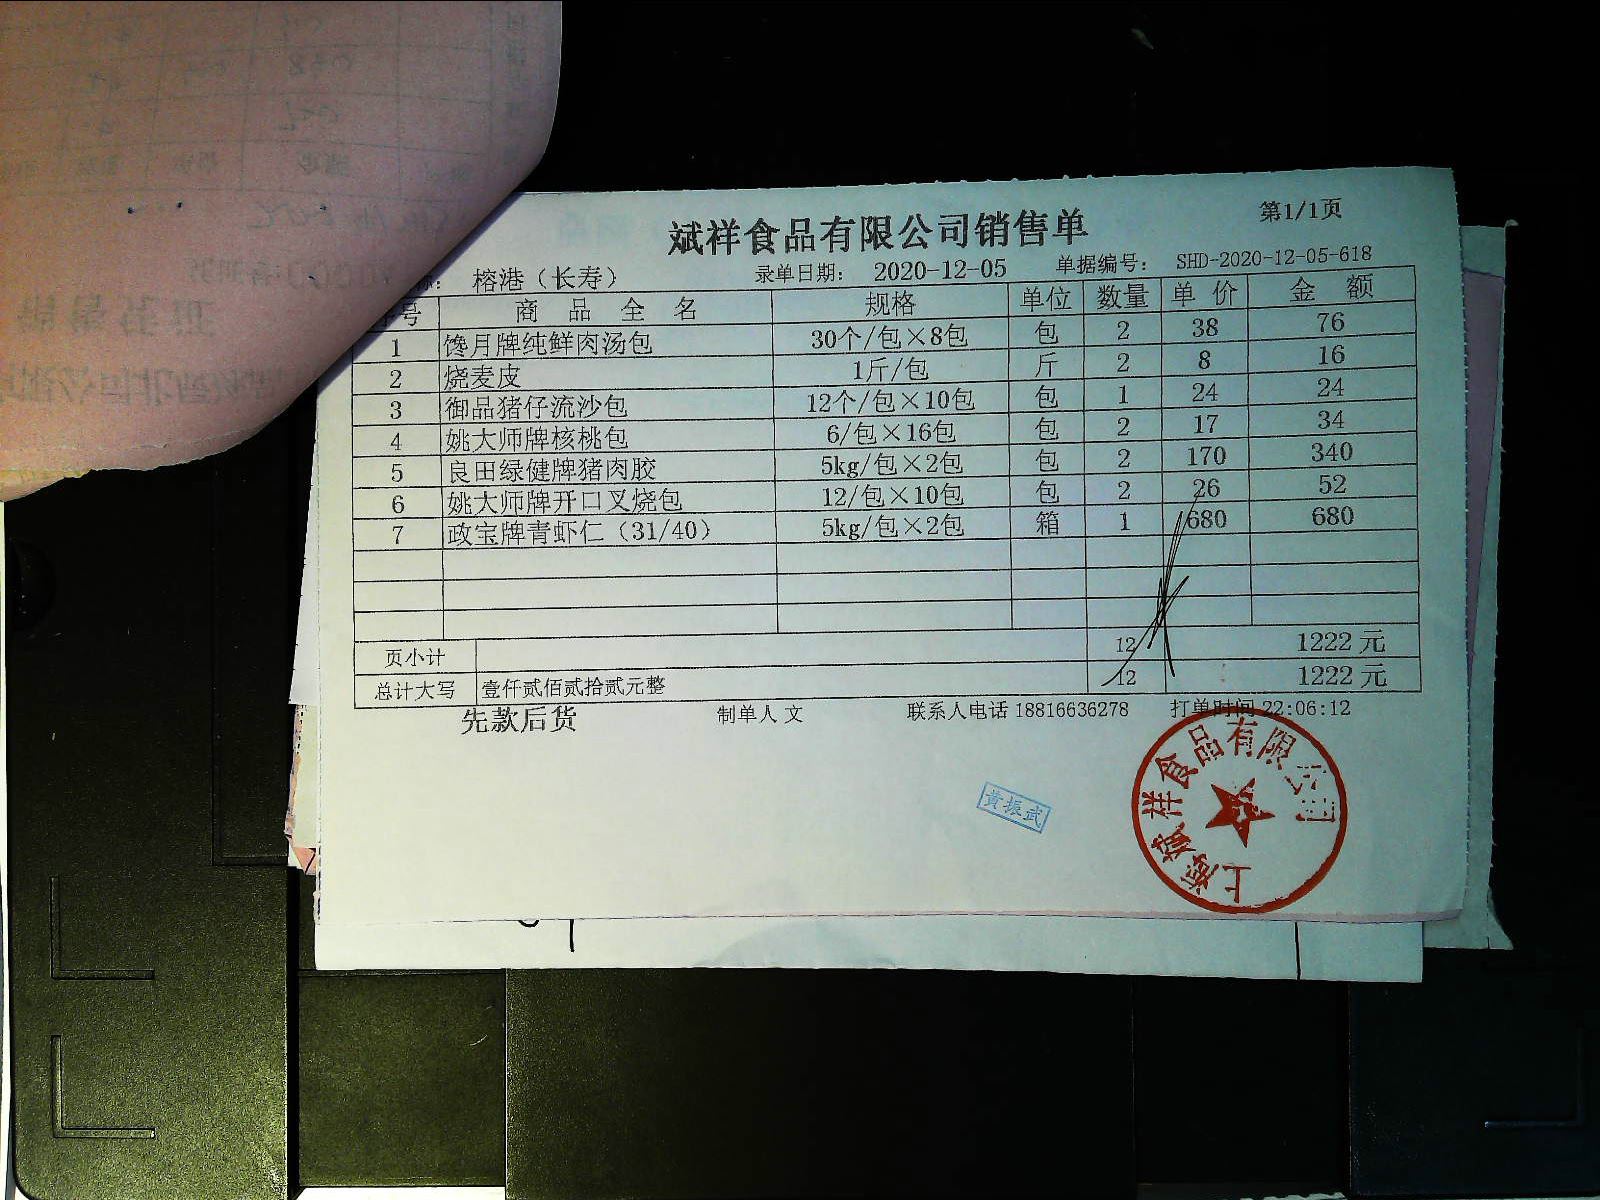 斌祥食品有限公司销售单
第1/1页
榕港（长寿） 录单日期： 2020-12-05 单据编号： SHD-2020-12-05-618
号 商 品 全 名 规格 单位 数量 单 价 金 额
1 馋月牌纯鲜肉汤包 30个/包×8包 包 2 38 76
2 烧麦皮 1斤/包 斤 2 8 16
3 御品猪仔流沙包 12个/包×10包 包 1 24 24
4 姚大师牌核桃包 6/包×16包 包 2 17 34
5 良田绿健牌猪肉胶 5kg/包×2包 包 2 170 340
6 姚大师牌开口叉烧包 12/包×10包 包 2 26 52
7 政宝牌青虾仁（31/40） 5kg/包×2包 箱 1 680 680
页小计 12 1222 元
总计大写 壹仟贰佰贰拾贰元整 12 1222 元
先款后货 制单人 文 联系人电话 18816636278 打单时间 22:06:12
黄振武
上海斌祥食品有限公司